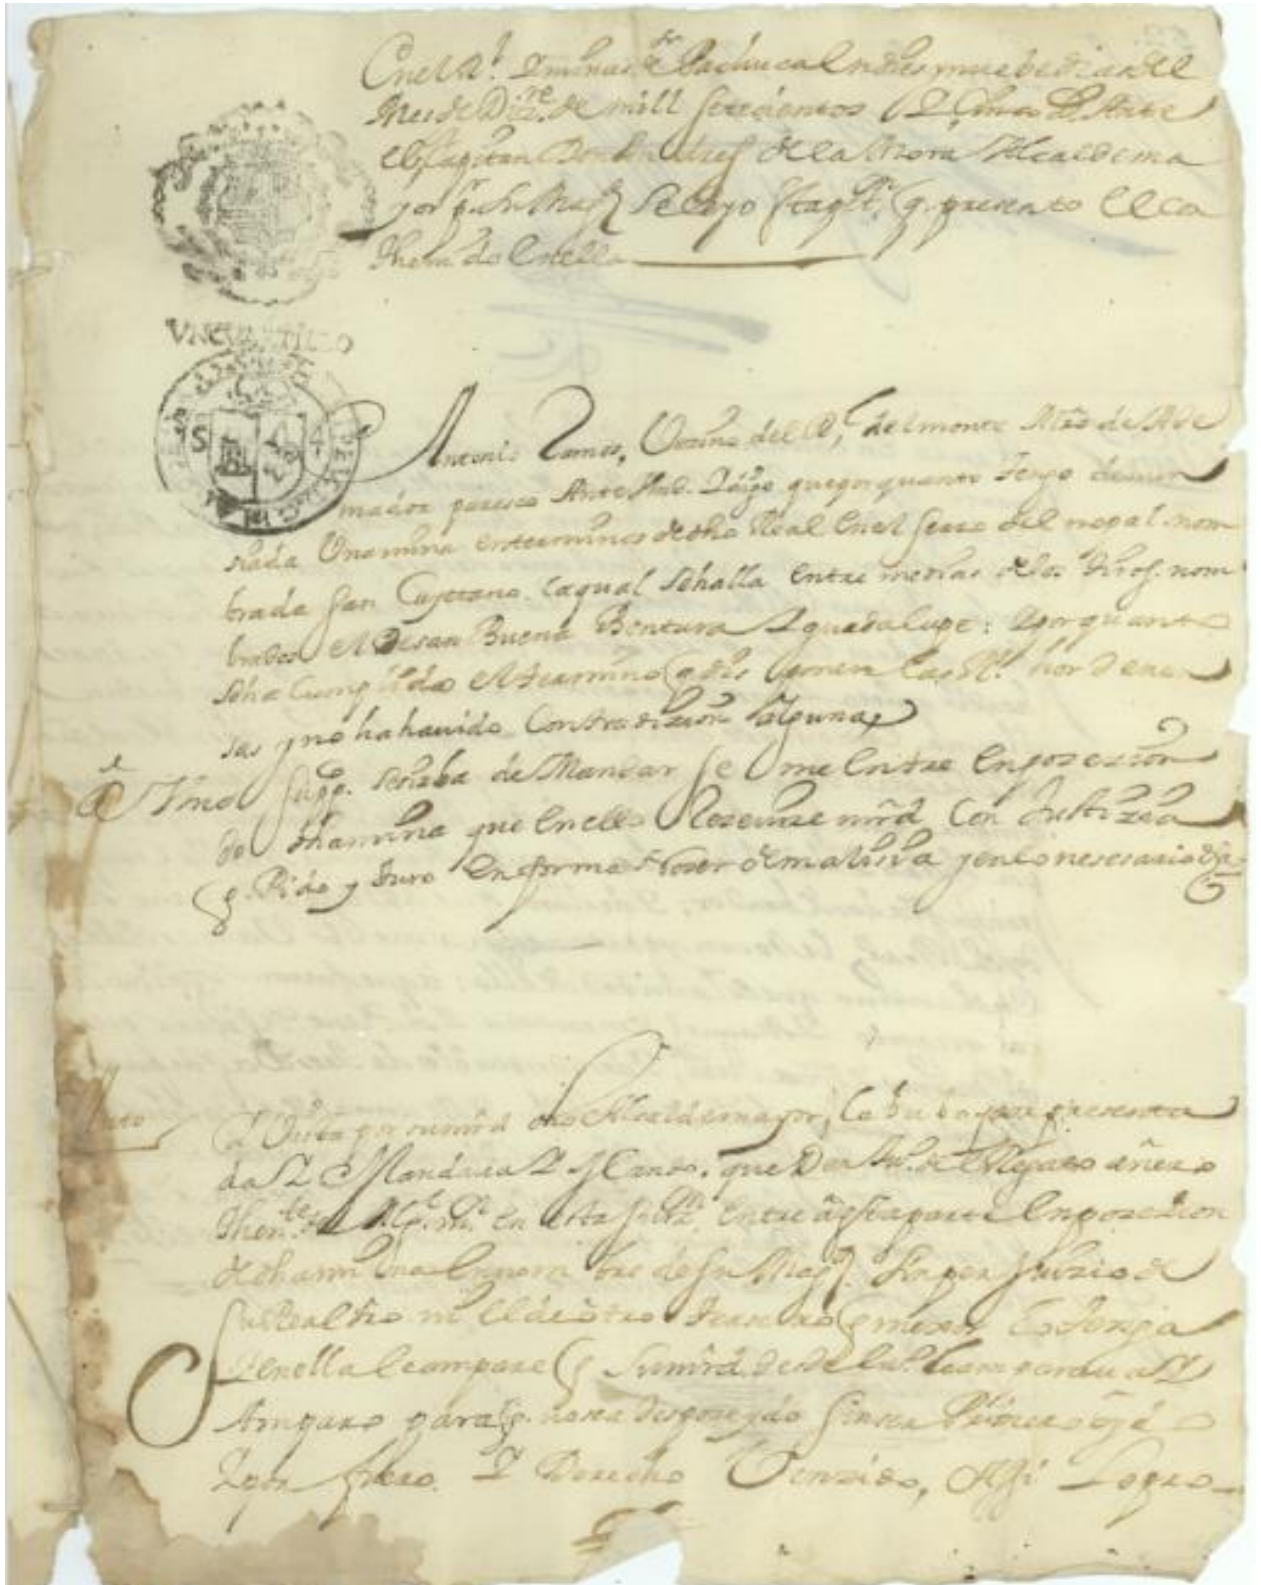 En el R.l de minas de Pachuca en dies y nuebe dias del
Mes de Diz.re de mill setecientos y
el Capitan Don Andres de la Mora Alcalde ma
yor p.r su Mag.d se leyo esta pet.n q. presento el co
thenido en ella
VN CVARTILLO
Antonio Ramos, Vezino del R.l del monte
paresco Ante Vmd. y digo que por quanto tengo denun
siada Una mina en terminos de dho Real en el serro del nopal nom
brada san Cayetano, la qual se halla entre medias de los nom
brados el de san Buena Bentura y guadalupe: y por quanto
se ha cumplido el termino q. disponen las R.s hordenan
sas y no ha havido Contradizion alguna
A Vmd supp.co se sirba de Mandar se me entre en posezion
de dha mina que en ello Reseuire mrd Con Justizia
q. Pido y Juro en forma no ser de malisia y en lo nesesario
Auto
Y Vista por su mrd dho Alcalde mayor, la hubo por presenta
da y Mandava y Mando, que Don
then.te en esta Jur.n entre a esta parte en posezion
de dha mina en nombre de su Mag.d sin perjuizio de
su Real dro ni el de otro tersero q. mexor lo tenga
y en ella le ampare q. su mrd desde luego le amparava y
Amparo para q. no sea desposeydo sin ser Primero oydo
y por fuero y Derecho Venzido, Assi lo pro